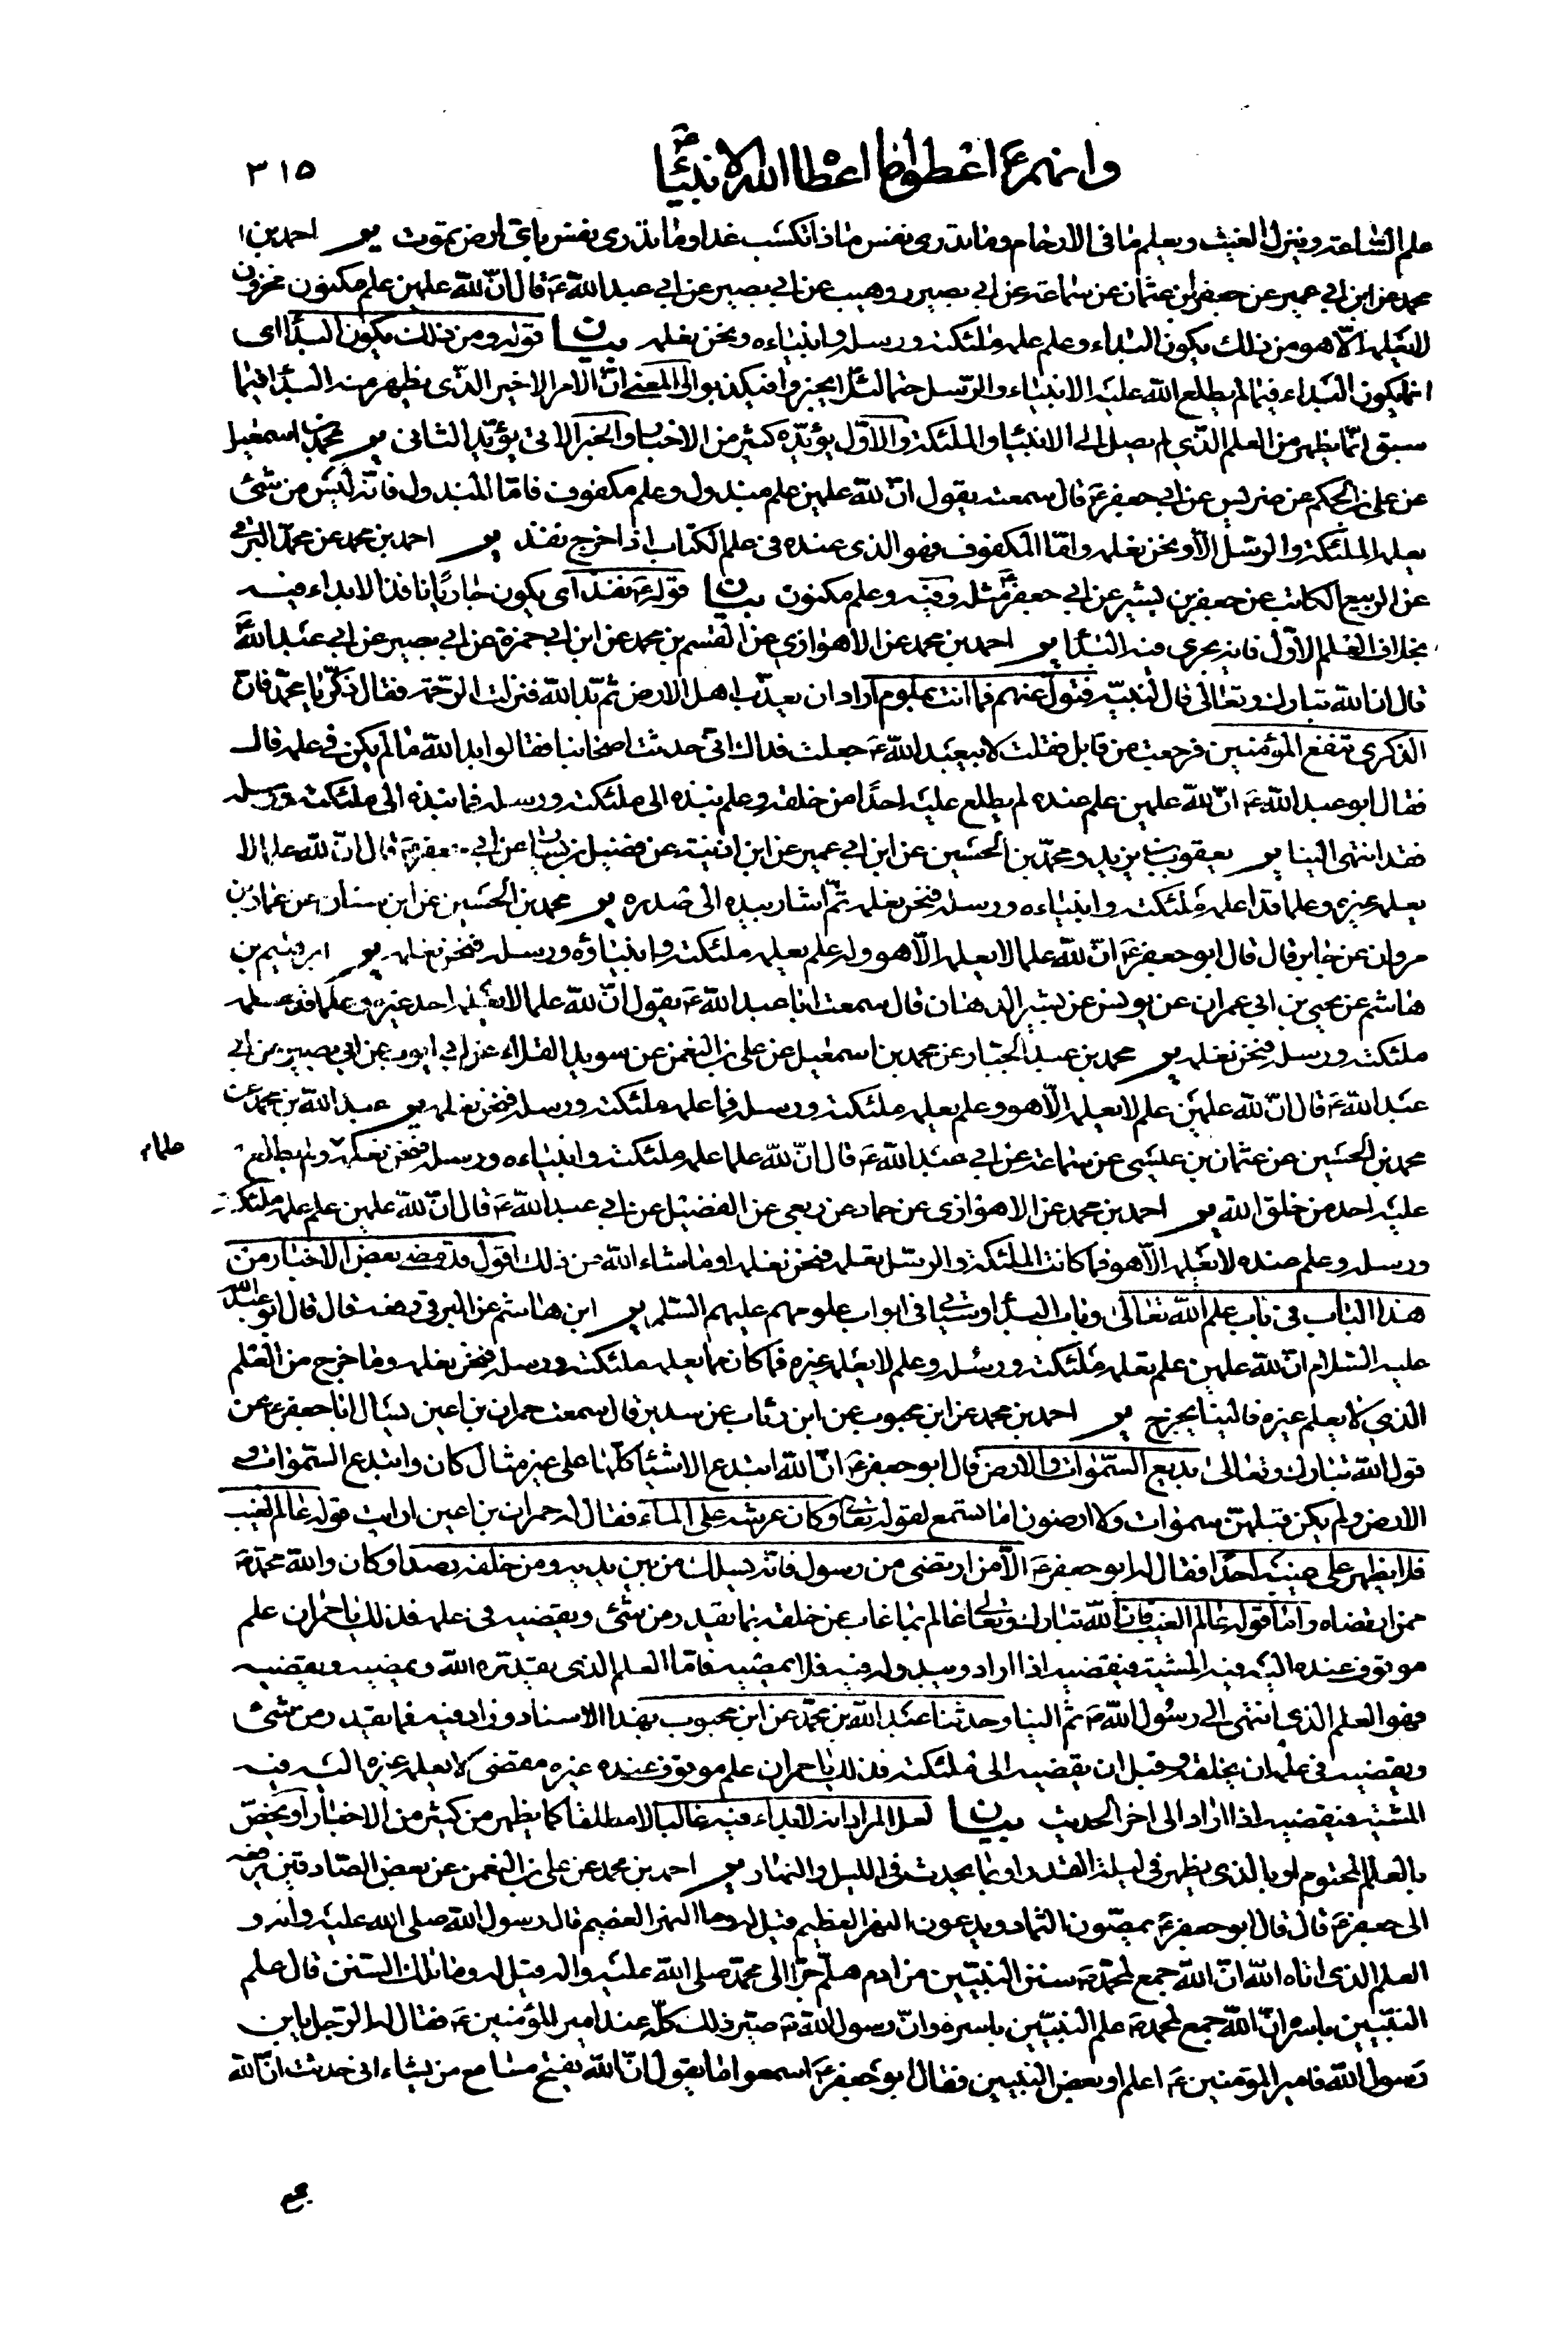 وانهم ع اعطوا ما اعطا الله الانبیاء ع
٣١٥
علم الساعة وینزل الغیث ویعلم ما فی الارحام وما تدری نفس ماذا تکسب غدا وما تدری نفس بای ارض تموت یر احمد بن
محمد عن ابن ابی عمیر عن جعفر بن عثمان عن سماعة عن ابی بصیر ووهیب عن ابی بصیر عن ابی عبد الله ع قال ان لله علمین علم مکنون مخزون
لا یعلمه الا هو من ذلك یکون البداء وعلم علمه ملئکته ورسله وانبیاءه ونحن نعلمه بیان قوله ومن ذلك یکون البداء ای
انما یکون البداء فیما لم یطلع الله علیه الانبیاء والرسل حتما لئلا یخبروا فیکذبوا والمعنی ان الامر الاخیر الذی یظهر منه البداء فیما
سبق انما یظهر من العلم الذی لم یصل الی الانبیاء والملئکة والاول یؤیده کثیر من الاخبار والخبر الاتی یؤید الثانی یر محمد بن اسمعیل
عن علی بن الحکم عن ضریس عن ابی جعفر ع قال سمعته یقول ان لله علمین علم مبذول وعلم مکفوف فاما المبذول فانه لیس من شئ
یعلمه الملئکة والرسل الا ونحن نعلمه واما المکفوف فهو الذی عنده فی علم الکتاب اذا خرج نفذ یر احمد بن محمد عن محمد البرقی
عن الربیع الکاتب عن جعفر بن بشیر عن ابی جعفر ع مثله وفیه وعلم مکنون بیان قوله ع نفذ ای یکون جاریا نافذا لا بداء فیه
بخلاف العلم الاول فانه یجری فیه البداء یر احمد بن محمد عن الاهوازی عن القسم بن محمد عن ابن ابی حمزة عن ابی بصیر عن ابی عبد الله ع
قال ان الله تبارك وتعالی قال لنبیه فتول عنهم فما انت بملوم اراد ان یعذب اهل الارض ثم بدا لله فنزلت الرحمة فقال ذکر یا محمد فان
الذکری تنفع المؤمنین فرجعت من قابل فقلت لابیعبد الله ع جعلت فداك انی حدثت اصحابنا فقالوا بدا لله ما لم یکن فی علمه قال
فقال ابو عبد الله ع ان لله علمین علم عنده لم یطلع علیه احدا من خلقه وعلم نبذه الی ملئکته ورسله فما نبذه الی ملئکته ورسله
فقد انتهی الینا یر یعقوب بن یزید ومحمد بن الحسین عن ابن ابی عمیر عن ابن اذینة عن فضیل بن یسار عن ابی جعفر ع قال ان لله علما لا
یعلمه غیره وعلما قد اعلمه ملئکته وانبیاءه ورسله فنحن نعلمه ثم اشار بیده الی صدره یر محمد بن الحسین عن ابن سنان عن عمار بن
مروان عن جابر قال قال ابو جعفر ع ان لله علما لا یعلمه الا هو وله علم یعلمه ملئکته وانبیاؤه ورسله فنحن نعلمه یر ابرهیم بن
هاشم عن یحیی بن ابی عمران عن یونس عن بشیر الدهان قال سمعت ابا عبد الله ع یقول ان لله علما لا یعلمه احد غیره وعلما قد علمه
ملئکته ورسله فنحن نعلمه یر محمد بن عبد الجبار عن محمد بن اسمعیل عن علی بن النعمن عن سوید القلاء عن ابی ایوب عن ابی بصیر عن ابی
عبد الله ع قال ان لله علمین علم لا یعلمه الا هو وعلم یعلمه ملئکته ورسله فما علمه ملئکته ورسله فنحن نعلمه یر عبد الله بن محمد عن
محمد بن الحسین عن عثمان بن عیسی عن سماعة عن ابی عبد الله ع قال ان لله علما علمه ملئکته وانبیاءه ورسله فنحن نعلمه ولم یطلع
علیه احد من خلق الله یر احمد بن محمد عن الاهوازی عن حماد عن ربعی عن الفضیل عن ابی عبد الله ع قال ان لله علمین علم علمه ملئکته
ورسله وعلم عنده لا یعلمه الا هو فما کانت الملئکة والرسل تعلمه فنحن نعلمه او ما شاء الله من ذلك اقول قد مضی بعض الاخبار من
هذا الباب فی باب علم الله تعالی وباب البداء وسیاتی فی ابواب علومهم علیهم السلام یر ابن هاشم عن البرقی رفعه قال قال ابو عبد الله
علیه السلام ان لله علمین علم تعلمه ملئکته ورسله وعلم لا یعلمه غیره فما کان مما یعلمه ملئکته ورسله فنحن نعلمه وما خرج من العلم
الذی لا یعلم غیره فالینا یخرج یر احمد بن محمد عن ابن محبوب عن ابن رئاب عن سدیر قال سمعت حمران بن اعین یسال ابا جعفر ع عن
قول الله تبارك وتعالی بدیع السموات والارض قال ابو جعفر ع ان الله ابتدع الاشیاء کلها علی غیر مثال کان وابتدع السموات و
الارض ولم یکن قبلهن سموات ولا ارضون اما تستمع لقوله تعالی وکان عرشه علی الماء فقال له حمران بن اعین ارایت قوله عالم الغیب
فلا یظهر علی غیبه احدا فقال له ابو جعفر ع الا من ارتضی من رسول فانه یسلك من بین یدیه ومن خلفه رصدا وکان والله محمد ص
ممن ارتضاه واما قوله عالم الغیب فان الله تبارك وتعالی عالم بما غاب عن خلقه بما یقدر من شئ ویقضیه فی علمه فذلك یا حمران علم
موقوف عنده الیه فیه المشیة فیقضیه اذا اراد ویبدو له فیه فلا یمضیه فاما العلم الذی یقدره الله ویمضیه ویقضیه
فهو العلم الذی انتهی الی رسول الله ص ثم الینا وحدثنا عبد الله بن محمد عن ابن محبوب بهذا الاسناد وزاد فیه فما یقدر من شئ
ویقضیه فی علمه ان یخلقه وقبل ان یقضیه الی ملئکته فذلك یا حمران علم موقوف عنده غیر مقضی لا یعلمه غیره الیه فیه
المشیة فیقضیه اذا اراد الی اخر الحدیث بیان لعل المراد انه لا بداء فیه غالبا لا مطلقا کما یظهر من کثیر من الاخبار او یخص
بالعلم المحتوم او بالذی یظهر فی لیلة القدر او بما یحدث فی اللیل والنهار یر احمد بن محمد عن علی بن النعمن عن بعض الصادقین یرفعه
الی جعفر ع قال قال ابو جعفر ع یمصون الثماد ویدعون النهر العظیم قیل له وما النهر العظیم قال رسول الله صلی الله علیه وآله و
العلم الذی اتاه الله ان الله جمع لمحمد ص سنن النبیین من ادم هلم جرا الی محمد صلی الله علیه واله قیل له وما تلك السنن قال علم
النبیین باسره ان الله جمع لمحمد ص علم النبیین باسره وان رسول الله ص صیر ذلك کله عند امیر المؤمنین ع فقال له الرجل یا بن
رسول الله فامیر المؤمنین ع اعلم او بعض النبیین فقال ابو جعفر ع اسمعوا ما یقول ان الله یفتح مسامع من یشاء انی حدثت ان الله